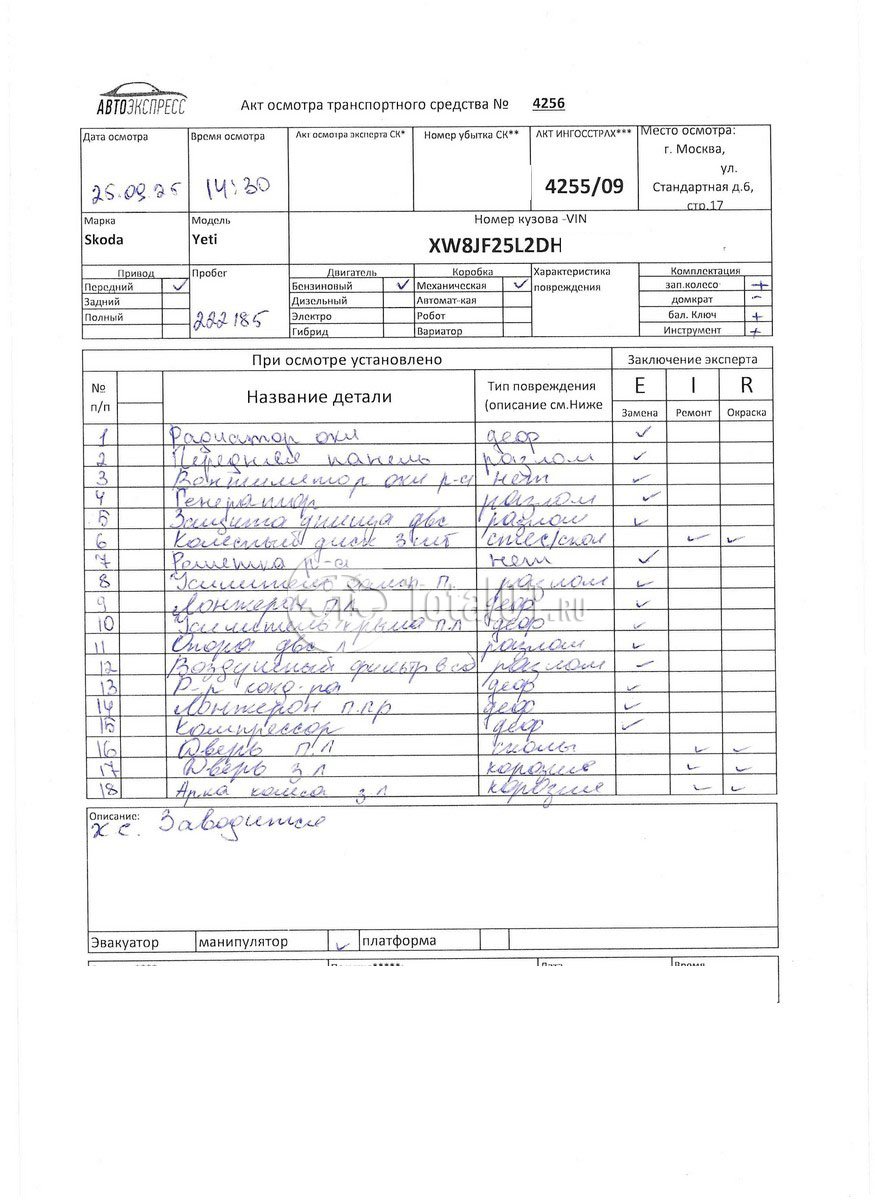 АВТОЭКСПРЕСС
Акт осмотра транспортного средства № 4256
Дата осмотра
25.09.25
Время осмотра
14:30
Акт осмотра эксперта СК*
Номер убытка СК**
АКТ ИНГОССТРАХ***
4255/09
Место осмотра:
г. Москва,
ул.
Стандартная д.6,
стр.17
Марка
Skoda
Модель
Yeti
Номер кузова -VIN
XW8JF25L2DH
Привод
Передний ✓
Задний
Полный
Пробег
222185
Двигатель
Бензиновый ✓
Дизельный
Электро
Гибрид
Коробка
Механическая ✓
Автомат-кая
Робот
Вариатор
Характеристика
повреждения
Комплектация
зап.колесо +
домкрат -
бал. Ключ +
Инструмент +
При осмотре установлено
Заключение эксперта
№
п/п
Название детали
Тип повреждения
(описание см.Ниже
E I R
Замена Ремонт Окраска
1 Радиатор охл деф ✓
2 Передняя панель разлом ✓
3 Вентилятор охл р-а нет ✓
4 Генератор разлом ✓
5 Защита днища двс разлом ✓
6 Колесный диск 3 шт стес/скол ✓ ✓
7 Решетка р-а нет ✓
8 Усилитель замр. п. разлом ✓
9 Лонжерон п.л деф ✓
10 Усилитель крыла п.л деф ✓
11 Опора двс л разлом ✓
12 Воздушный фильтр разлом ✓
13 Р-р конд-ра деф ✓
14 Лонжерон п.пр деф ✓
15 Компрессор деф ✓
16 Дверь п.л сколы ✓ ✓
17 Дверь з л корозие ✓ ✓
18 Арка колеса з л корозие ✓ ✓
TotalKit.RU
Описание:
х с. Заводится
Эвакуатор
манипулятор ✓
платформа
Дата
Время